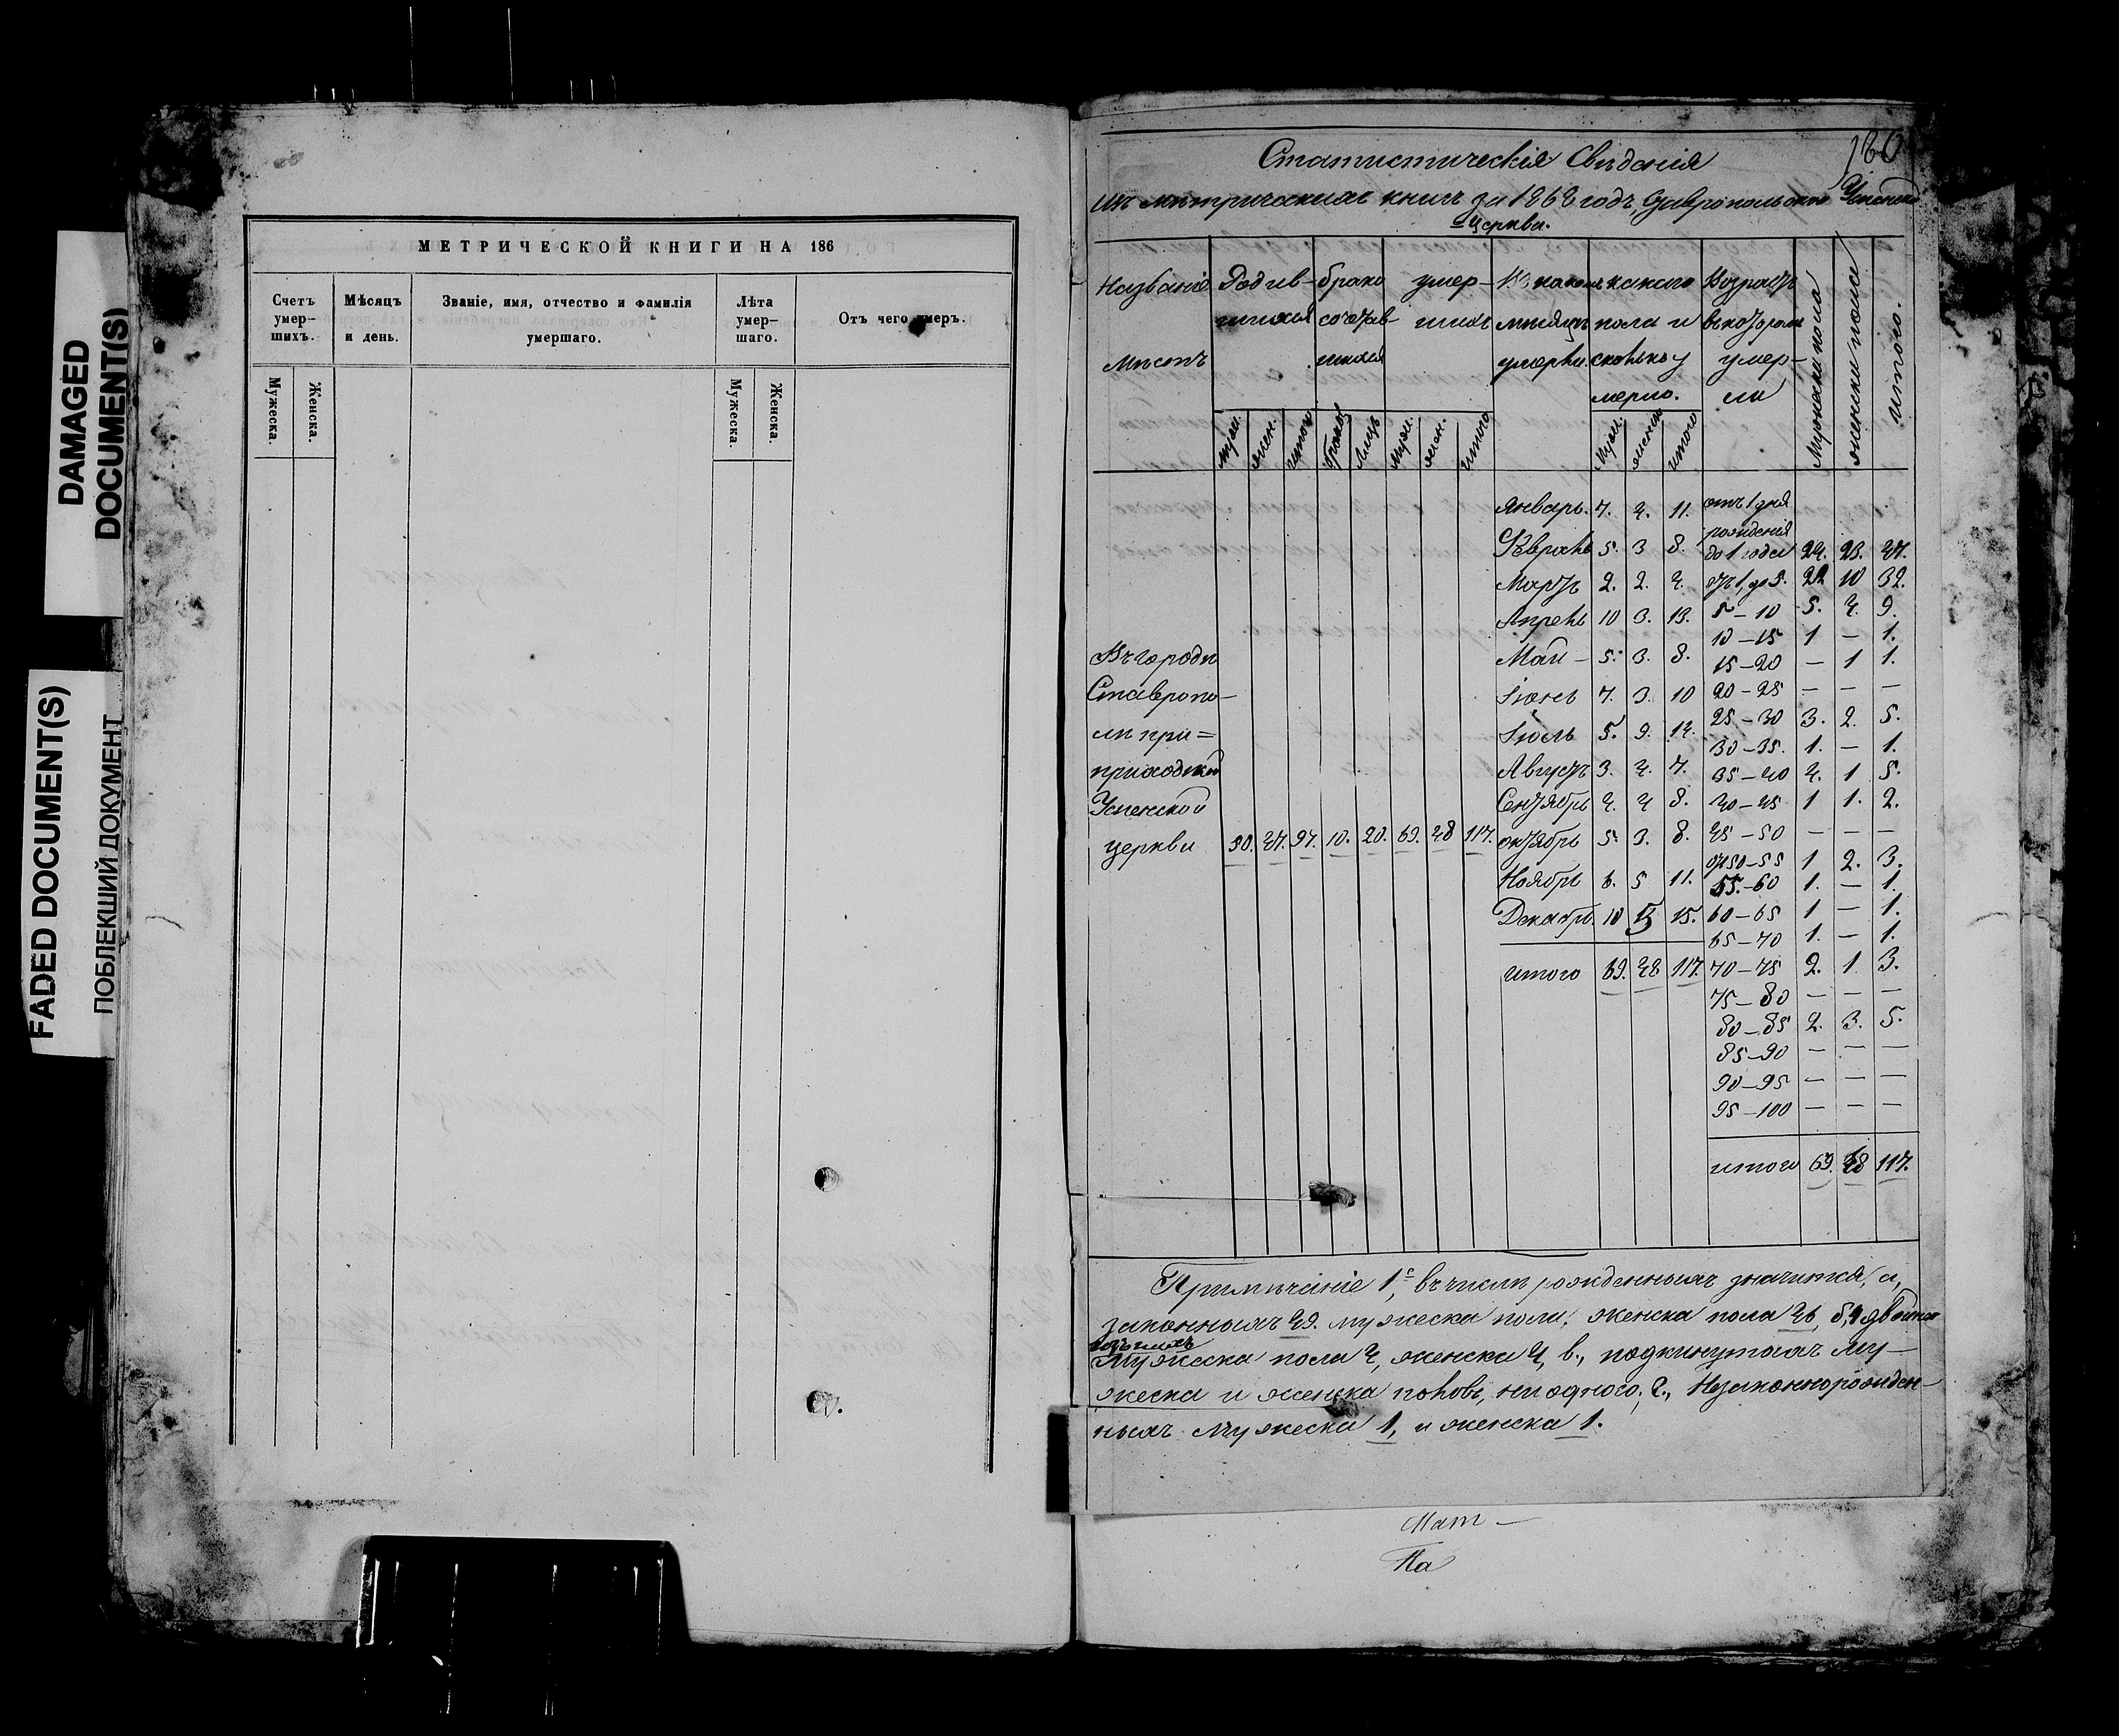 DAMAGED
DOCUMENT(S)
FADED DOCUMENT(S)
ПОБЛЕКШИЙ ДОКУМЕНТ
МЕТРИЧЕСКОЙ КНИГИ НА 186
Счетъ умер-шихъ. Мѣсяцъ и день. Званіе, имя, отчество и фамилія умершаго. Лѣта умер-шаго. Отъ чего умеръ.
Мужеска. Женска. Мужеска. Женска.
180
Статистическія Свѣдѣнія
изъ метрическихъ книгъ за 1868 годъ, Ставропольской Успенской
церкви.
Названіе Родив- брако умер- Въ какомъ какого Возрастъ Мужеска пола женска пола итого.
шихся сочетав- шихъ мѣсяцѣ пола и въ которомъ
мѣстъ шихся умерли. сколько у умер-
мерло. ли
муж. жен. итого браковъ лицъ муж. жен. итого муж. женск. итого
Январь. 7. 4. 11. отъ 1 дня
рожденія
Февраль 5. 3 8. до 1 года 24. 23. 47.
Мартъ 2. 2. 4. отъ 1, до 5. 22 10 32.
Апрель 10 3. 13. 5 – 10 5. 4. 9.
10 – 15 1 – 1.
Въ городѣ Май – 5. 3. 8. 15 – 20 – 1 1.
Ставропо- Іюнь 7. 3. 10 20 – 25 – – –
25 – 30 3. 2. 5.
ли при= Іюль 5. 9. 14. 30 – 35. 1. – 1.
приходской Августъ 3. 4. 7. 35 – 40 4. 1 5.
Успенской Сентябрь 4. 4 8. 40 – 45 1 1. 2.
церкви 50. 47. 97. 10. 20. 69. 48 117. октябрь 5. 3. 8. 45 – 50 – – –
отъ 50 – 55 1 2. 3.
Ноябрь 6. 5 11. 55. – 60 1. – 1.
Декабрь. 10 5 15. 60 – 65 1 – 1.
65 – 70 1. – 1.
итого 69. 48 117. 70 – 75 2. 1. 3.
75 – 80 – – –
80 – 85 2. 3. 5.
85 – 90 – – –
90 – 95 – – –
95 – 100 – – –
итого 69. 48 117.
Примѣчаніе 1е, въ числѣ рожденныхъ значится, а,
законныхъ 49. мужеска пола, женска пола 46, б,
Мужеска пола 4, женска 4, в., подкинутыхъ му-
жеска и женска половъ, ни одного, г., Незаконнорожден-
ныхъ Мужеска 1, и женска 1.
Мат –
Па